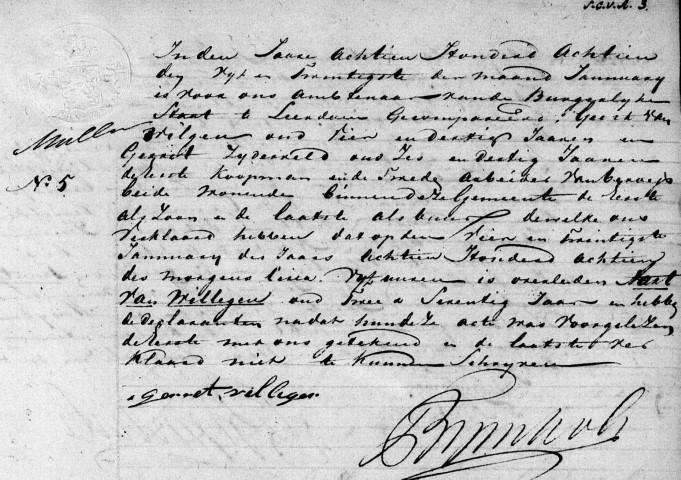 S.C.V.A. 3.
In den Jaare Achtien Honderd Achtien
den Vyf en Twintigste der maand Jannuary
is voor ons Ambtenaar van de Burgelyke
Staat te Leerdam Gecompareerd, Gerrit Van
Wilgen oud Vier en dertig Jaaren en
Gerrit Zyderveld oud Zes en dertig Jaaren
de Eerste Koopman en de Tweede Arbeider Van beroep
beide woonende binnen deze Gemeente de Eerste
als Zoon en de laatste als buur dewelke ons
Verklaard hebben dat op den Vier en Twintigste
Jannuary des Jaars Achtien Honderd Achtien
des morgens circa Vyf uuren is overleden Aart
Van Willegen oud Twee en Seventig Jaar en hebben
de declaranten nadat hun deze acte was Voorgelezen
de Eerste met ons getekend en de laatste ver
klaard niet te kunnen Schryven
N.o 5
gerret villegen